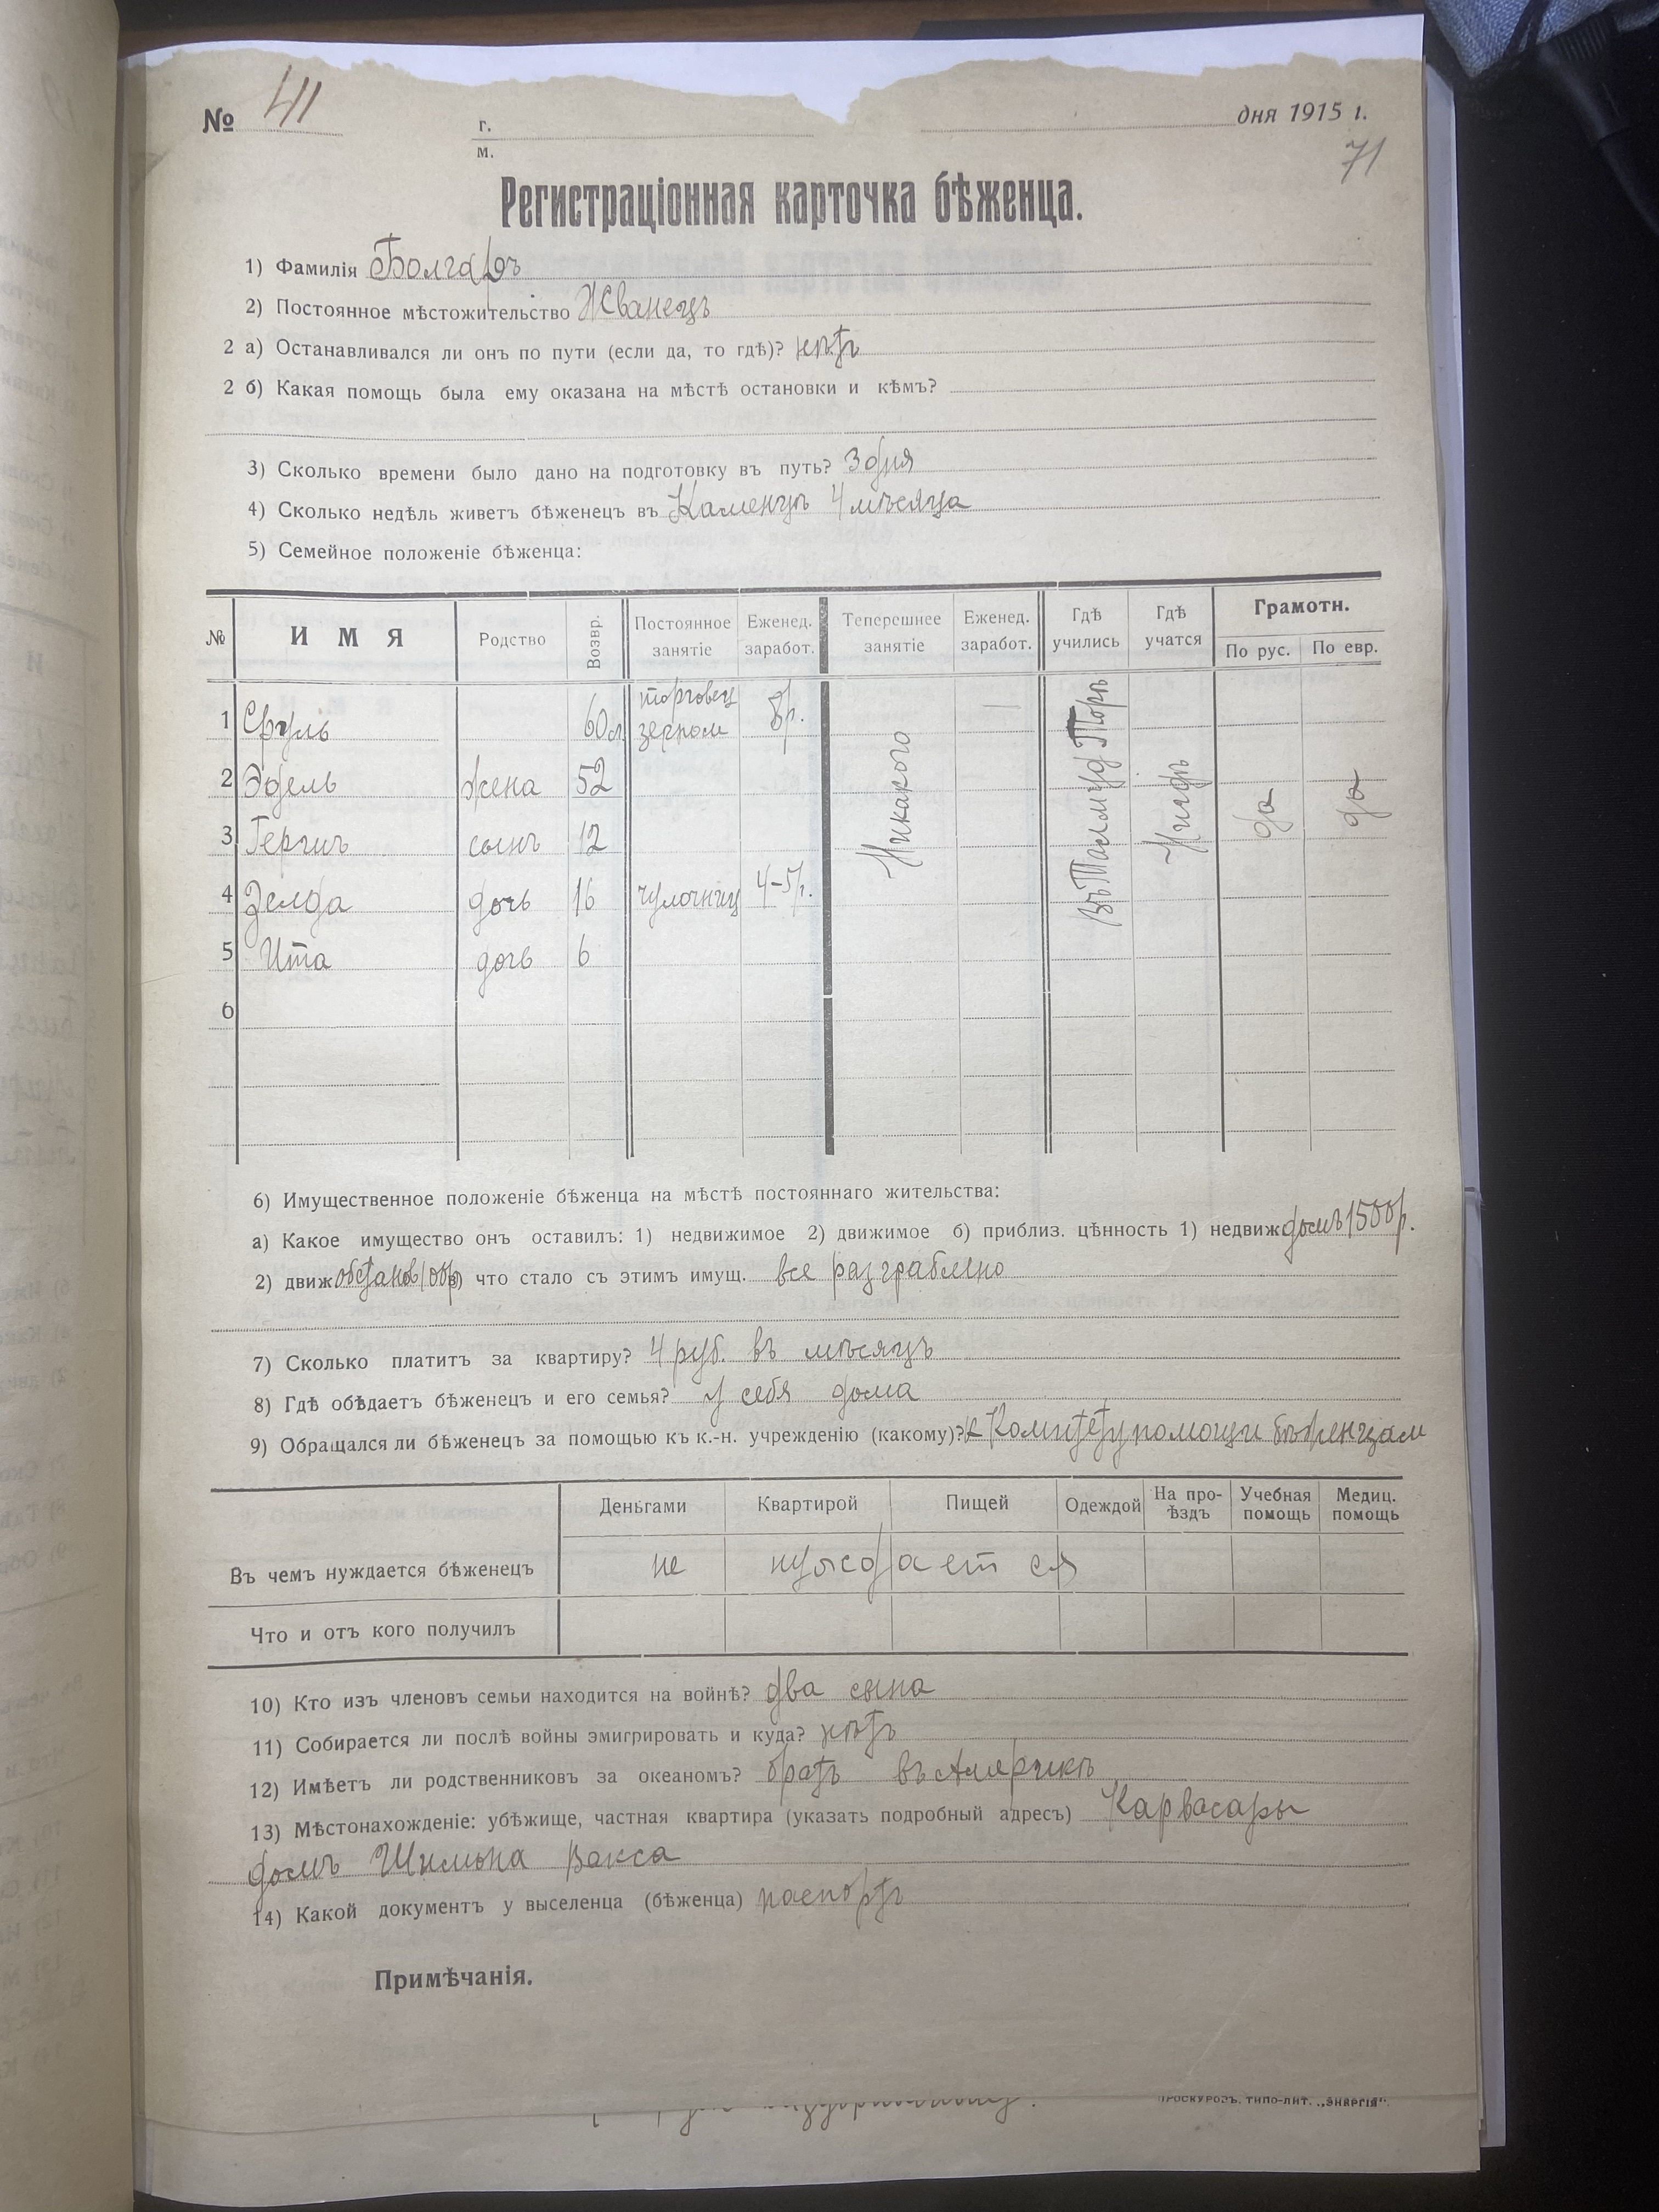 № 41 г. дня 1915 г.
м.
71
Регистраціонная карточка бѣженца.
1) Фамилія Болгаръ
2) Постоянное мѣстожительство Жванецъ
2 а) Останавливался ли онъ по пути (если да, то гдѣ)? нѣтъ
2 б) Какая помощь была ему оказана на мѣстѣ остановки и кѣмъ?
3) Сколько времени было дано на подготовку въ путь? 3 дня
4) Сколько недѣль живетъ бѣженецъ въ Каменцѣ 4 мѣсяца
5) Семейное положеніе бѣженца:
№ ИМЯ Родство Возвр. Постоянное занятіе Еженед. заработ. Теперешнее занятіе Еженед. заработ. Гдѣ учились Гдѣ учатся Грамотн. По рус. По евр.
1 Сруль 60 л торговец зерном 8 р. —
2 Эдель жена 52
3 Гершъ сынъ 12
4 Зелда дочь 16 чулочниц 4-5 р.
5 Ита дочь 6
6
Никакого
Въ Талмуд Торѣ
Нигдѣ
да
да
6) Имущественное положеніе бѣженца на мѣстѣ постояннаго жительства:
а) Какое имущество онъ оставилъ: 1) недвижимое 2) движимое б) приблиз. цѣнность 1) недвиж домъ 1500 р.
2) движ обстанов 100 р в) что стало съ этимъ имущ. все разграблено
7) Сколько платитъ за квартиру? 4 руб. въ мѣсяцъ
8) Гдѣ обѣдаетъ бѣженецъ и его семья? у себя дома
9) Обращался ли бѣженецъ за помощью къ к.-н. учрежденію (какому)? к Комитету помощи бѣженцам
Деньгами Квартирой Пищей Одеждой На про-ѣздъ Учебная помощь Медиц. помощь
Въ чемъ нуждается бѣженецъ не нуждается
Что и отъ кого получилъ
10) Кто изъ членовъ семьи находится на войнѣ? два сына
11) Собирается ли послѣ войны эмигрировать и куда? нѣтъ
12) Имѣетъ ли родственниковъ за океаномъ? братъ въ Америкѣ
13) Мѣстонахожденіе: убѣжище, частная квартира (указать подробный адресъ) Карвасары
домъ Шимона Вакса
14) Какой документъ у выселенца (бѣженца) паспортъ
Примѣчанія.
ПРОСКУРОВЪ. ТИПО-ЛИТ. „ЭНЕРГІЯ“.